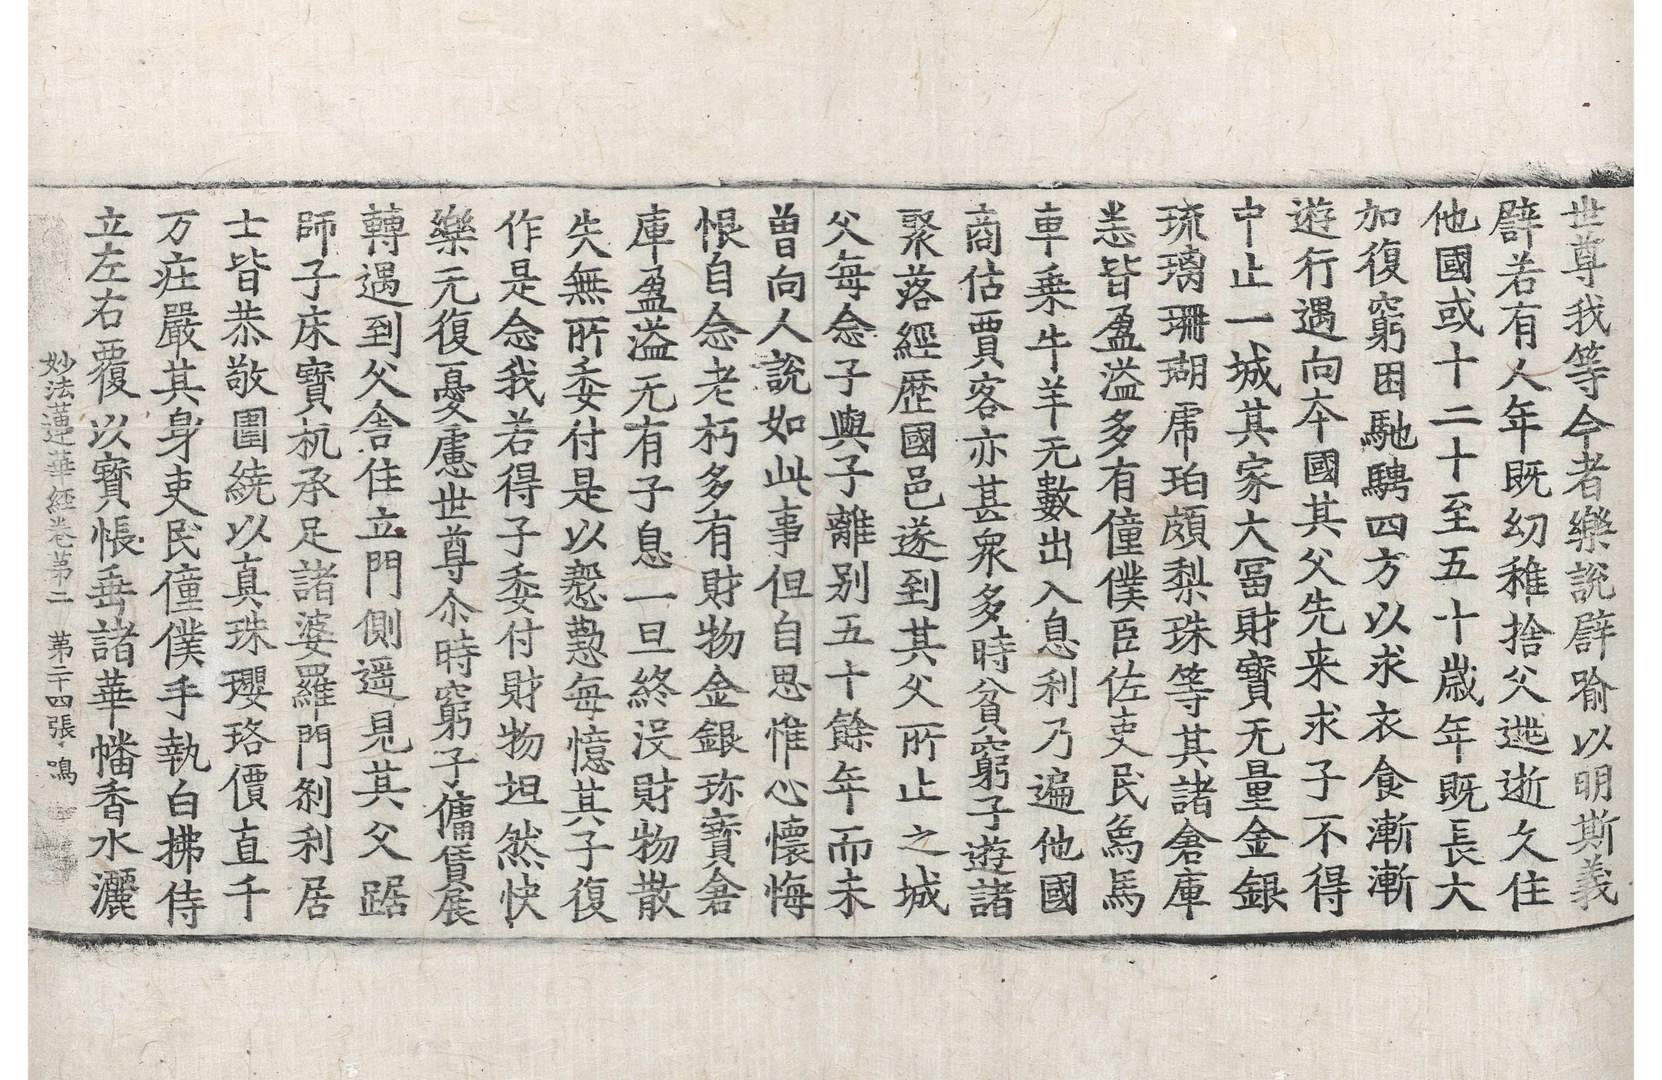 世尊我等今者樂說譬喻以明斯義
譬若有人年既幼稚捨父逃逝久住
他國或十二十至五十歲年既長大
加復窮困馳騁四方以求衣食漸漸
遊行遇向本國其父先来求子不得
中止一城其家大冨財寶无量金銀
琉璃珊瑚虎珀頗梨珠等其諸倉庫
悉皆盈溢多有僮僕臣佐吏民象馬
車乗牛羊无數出入息利乃遍他國
商估賈客亦甚衆多時貧窮子遊諸
聚落經歷國邑遂到其父所止之城
父每念子與子離別五十餘年而未
曾向人說如此事但自思惟心懷悔
恨自念老朽多有財物金銀珎寶倉
庫盈溢无有子息一旦終沒財物散
失無所委付是以慇懃每憶其子復
作是念我若得子委付財物坦然快
樂无復憂慮世尊尒時窮子傭賃展
轉遇到父舍住立門側遥見其父踞
師子床寶机承足諸婆羅門剎利居
士皆恭敬圍繞以真珠瓔珞價直千
万庄嚴其身吏民僮僕手執白拂侍
立左右覆以寶帳垂諸華幡香水灑
妙法蓮華経卷第二　第二十四張　鳴